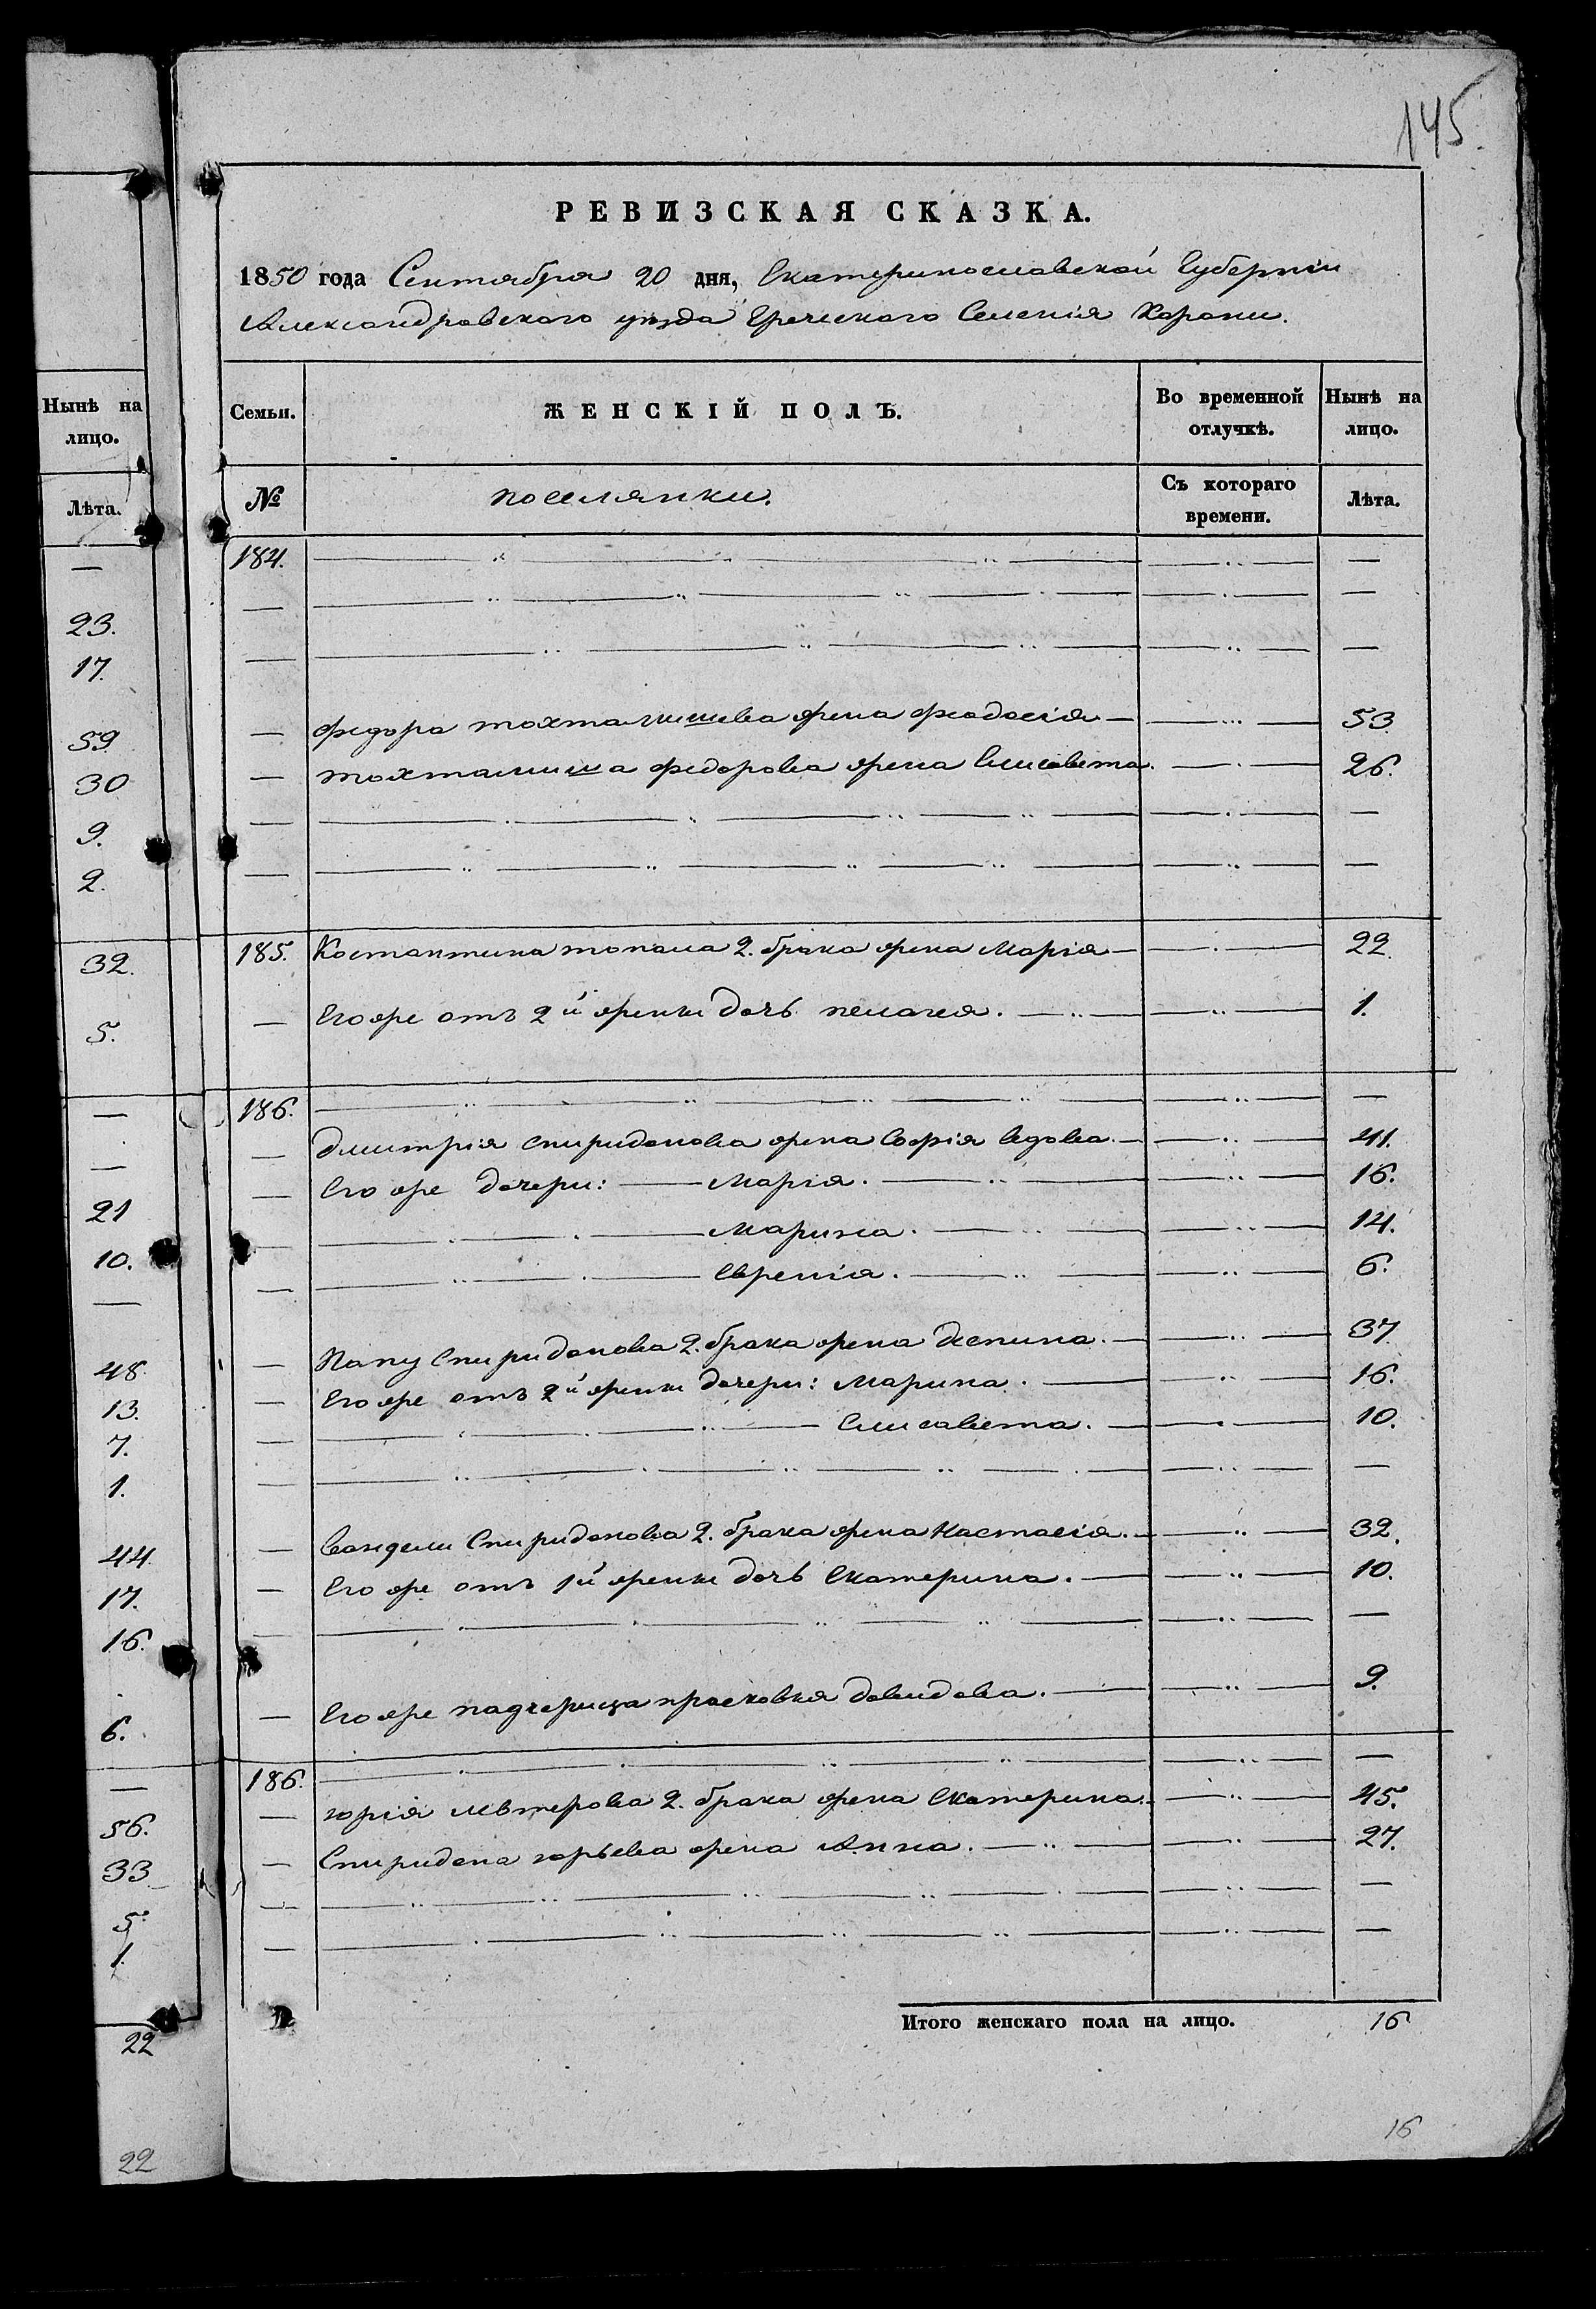 145.
РЕВИЗСКАЯ СКАЗКА.
1850 года Сентября 20 дня, Екатеринославской Губернiи
Александровского уѣзда Греческого Селенiя Карани.
Нынѣ на лицо.
Семьи.
ЖЕНСКIЙ ПОЛЪ.
Во временной отлучкѣ.
Нынѣ на лицо.
Лѣта.
№
поселянки.
Съ котораго времени.
Лѣта.
—
184. — —
23. — — —
17. — — —
59. — Федора тохтамишева жена феодосiя — — 53.
30 — тохтамиша федорова жена Елисавета. — 26.
9. — — —
2. — — —
32. 185. Костантина топала 2. брака жена Марiя — — 22.
5. — Его же отъ 2й женки дочь пелагея. — — 1.
— 186. — —
— — дмитрiя спиридонова жена Софiя вдова. — — 41.
21 — Его же дочери: — Марiя. — — 16.
10. — — Марина. — — 14.
— — — Еврепiя. — — 6.
48. — Папу Спиридонова 2. брака жена Деспина. — — 37.
13. — Его же отъ 2й женки дочери: Марина. — — 16.
7. — — Елисавета. — — 10.
1. — — —
44. — Вандели Спиридонова 2. брака жена Настасiя. — — 32.
17. — Его же отъ 1й женки дочь Екатерина. — — 10.
16. — — —
6. — Его же падчерица прасковия давидова. — — 9.
— 186. — —
56. — юрiя левтерова 2. брака жена Екатерина. — 45.
33 — Спиридона юрьева жена Анна. — — 27.
5. — — —
1. — — —
22
Итого женскаго пола на лицо. 16
22
16